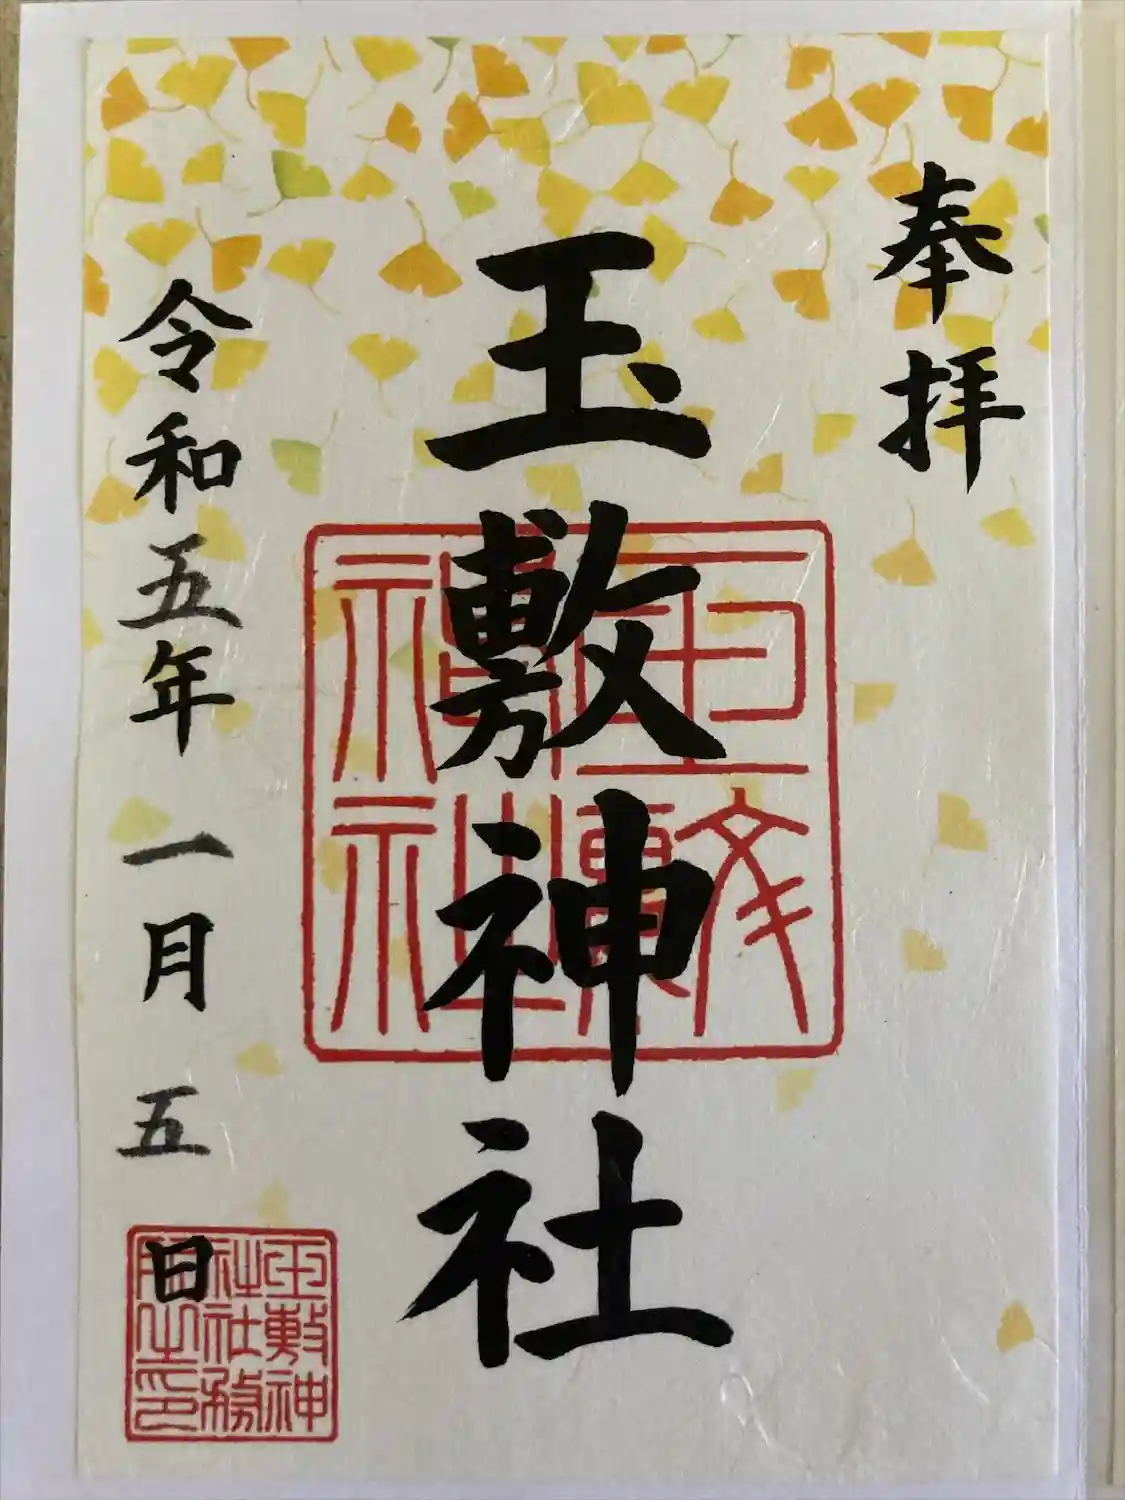 奉拝
玉敷神社
玉敷
神社
令和五年一月五日
玉敷神
社社務
所之印